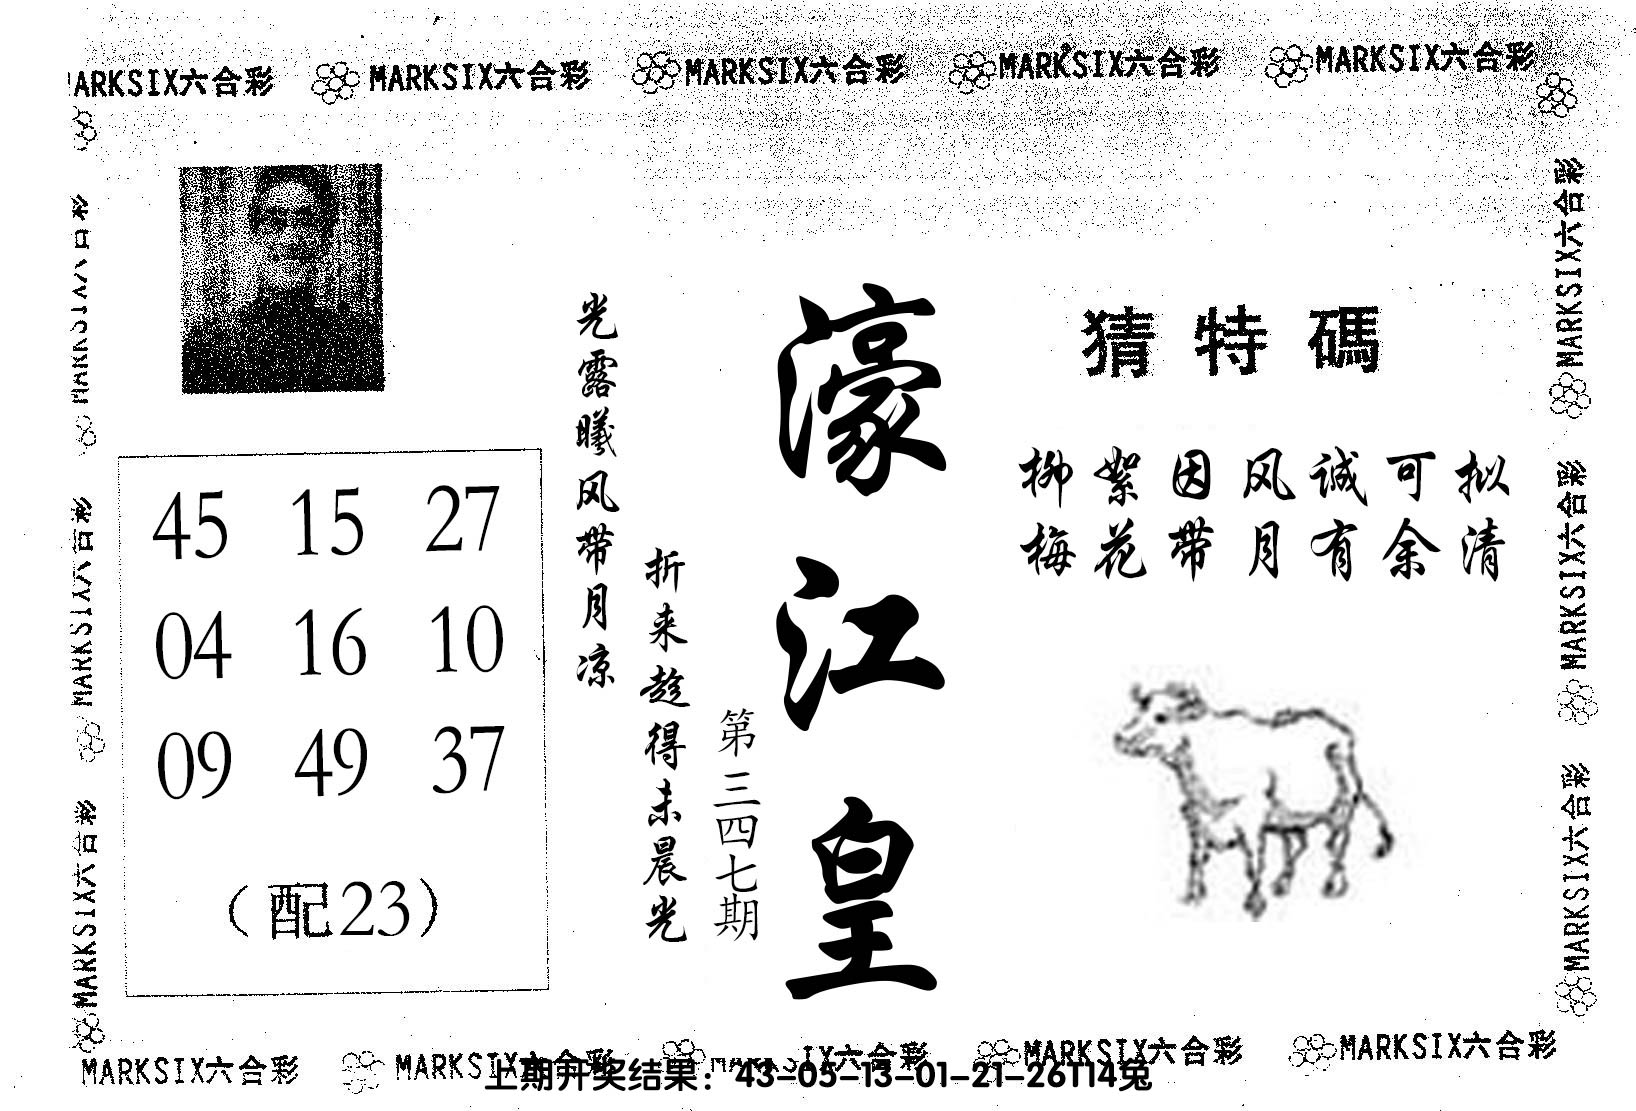 MARKSIX六合彩 MARKSIX六合彩 MARKSIX六合彩 MARKSIX六合彩 MARKSIX六合彩
猜特碼
柳絮因风诚可拟
梅花带月有余清
濠江皇
第三四七期
光露曦风带月凉
折来趁得未晨光
45 15 27
04 16 10
09 49 37
(配23)
MARKSIX六合彩
MARKSIX六合彩
MARKSIX六合彩
MARKSIX六合彩
MARKSIX六合彩
MARKSIX六合彩
MARKSIX六合彩 MARKSIX六合彩 MARKSIX六合彩 MARKSIX六合彩 MARKSIX六合彩
上期开奖结果：43-05-13-01-21-26T14兔